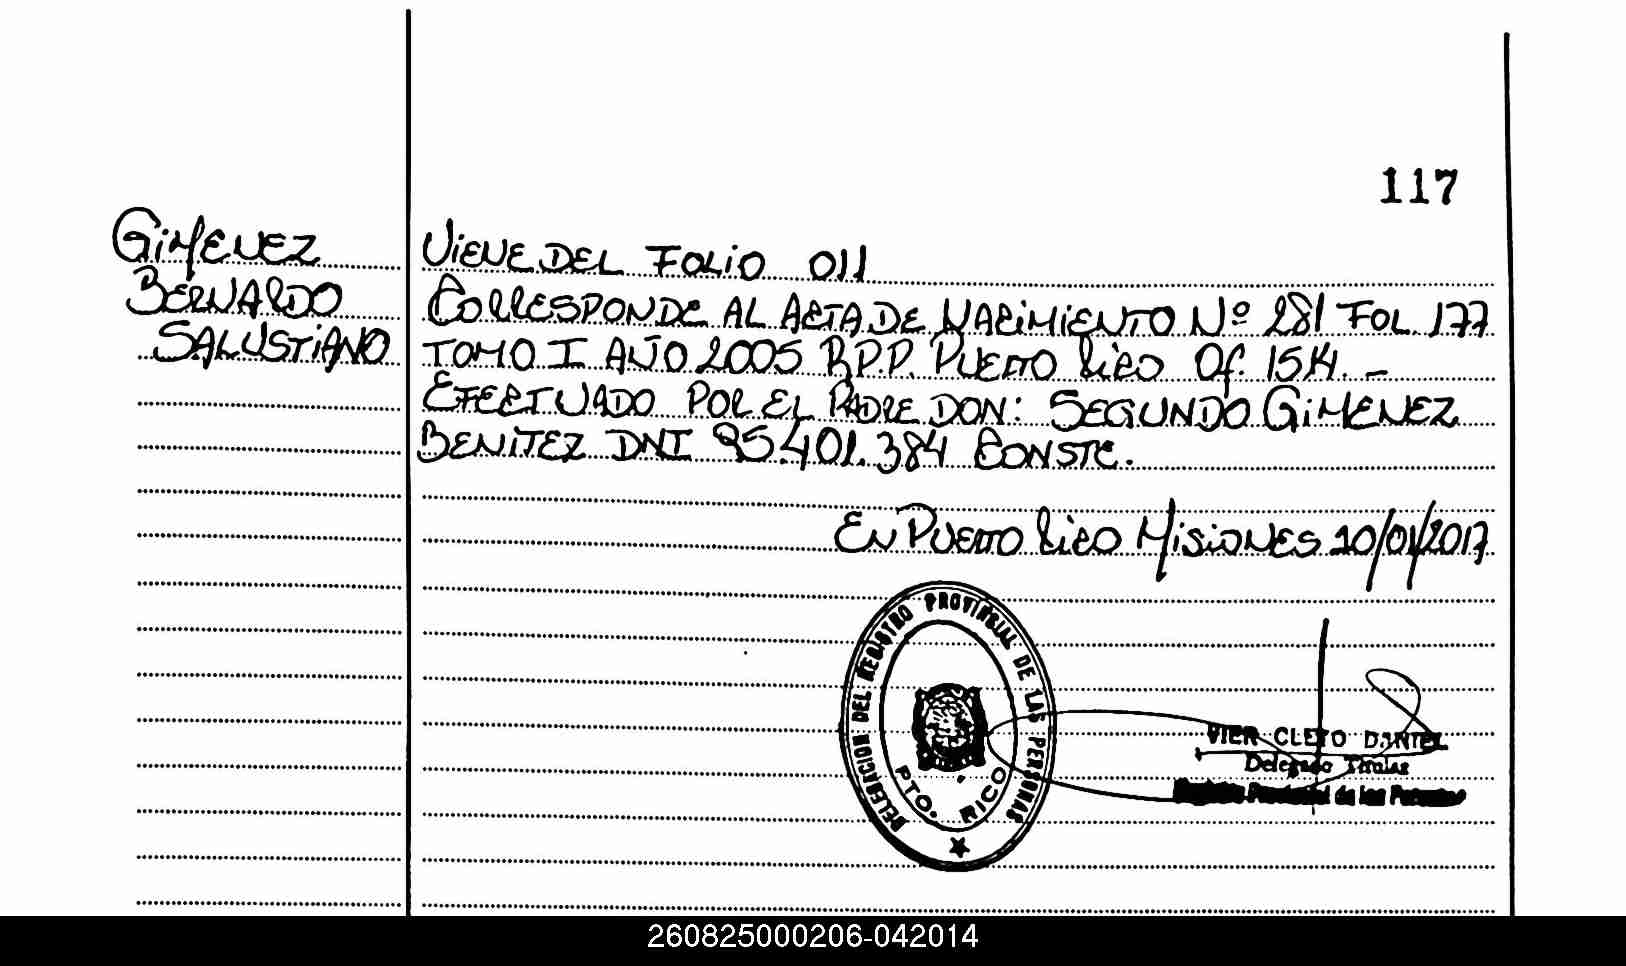 117
GIMENEZ
BERNARDO
SALUSTIANO
VIENE DEL FOLIO 011
CORRESPONDE AL ACTA DE NACIMIENTO Nº 281 FOL. 177
TOMO I AÑO 2005 R.P.P. PUERTO RICO Of. 1514. -
EFECTUADO POR EL PADRE DON: SEGUNDO GIMENEZ
BENITEZ DNI 95.401.384 CONSTE.
EN PUERTO RICO MISIONES 10/01/2017
DELEGACION DEL REGISTRO PROVINCIAL DE LAS PERSONAS
PTO. RICO
VIER CLETO DANIEL
Delegado Titular
Registro Provincial de las Personas
260825000206-042014